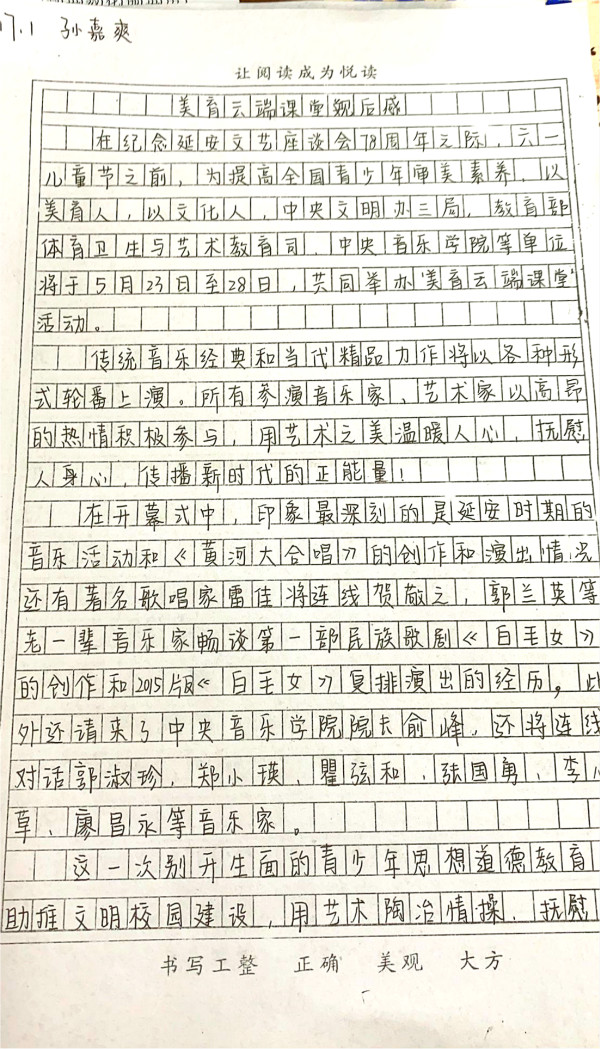 17.1 孙嘉爽
让阅读成为悦读
美育云端课堂观后感
在纪念延安文艺座谈会78周年之际，六一
儿童节之前，为提高全国青少年审美素养，以
美育人，以文化人，中央文明办三局，教育部
体育卫生与艺术教育司，中央音乐学院等单位
将于5月23日至28日，共同举办"美育云端课堂"
活动。
传统音乐经典和当代精品力作将以各种形
式轮番上演。所有参演音乐家、艺术家以高昂
的热情积极参与，用艺术之美温暖人心，抚慰
人身心，传播新时代的正能量！
在开幕式中，印象最深刻的是延安时期的
音乐活动和《黄河大合唱》的创作和演出情况
还有著名歌唱家雷佳将连线贺敬之，郭兰英等
老一辈音乐家畅谈第一部民族歌剧《白毛女》
的创作和2015版《白毛女》复排演出的经历。此
外还请来了中央音乐学院院长俞峰，还将连线
对话郭淑珍，郑小瑛、瞿弦和、张国勇、李心
草、廖昌永等音乐家。
这一次别开生面的青少年思想道德教育
助推文明校园建设，用艺术陶冶情操，抚慰
书写工整 正确 美观 大方